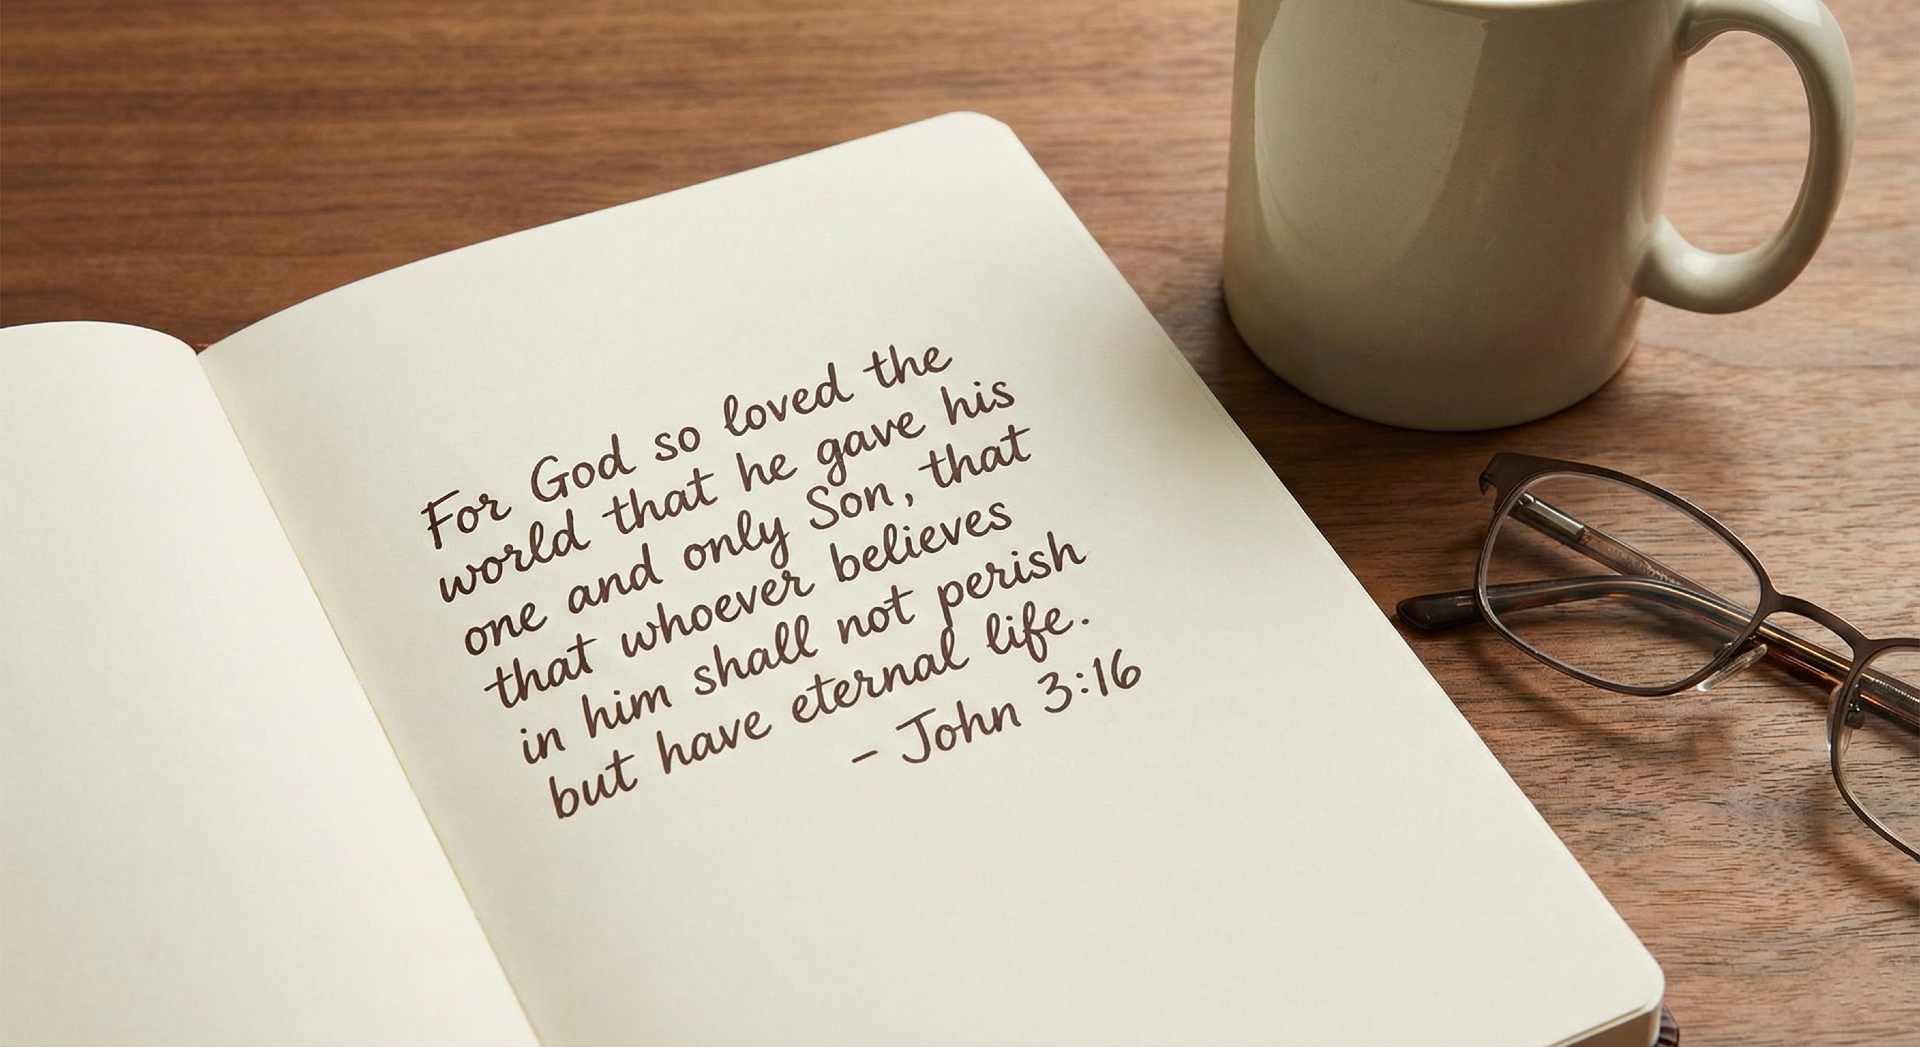 For God so loved the
world that he gave his
one and only Son, that
that whoever believes
in him shall not perish
but have eternal life.
- John 3:16